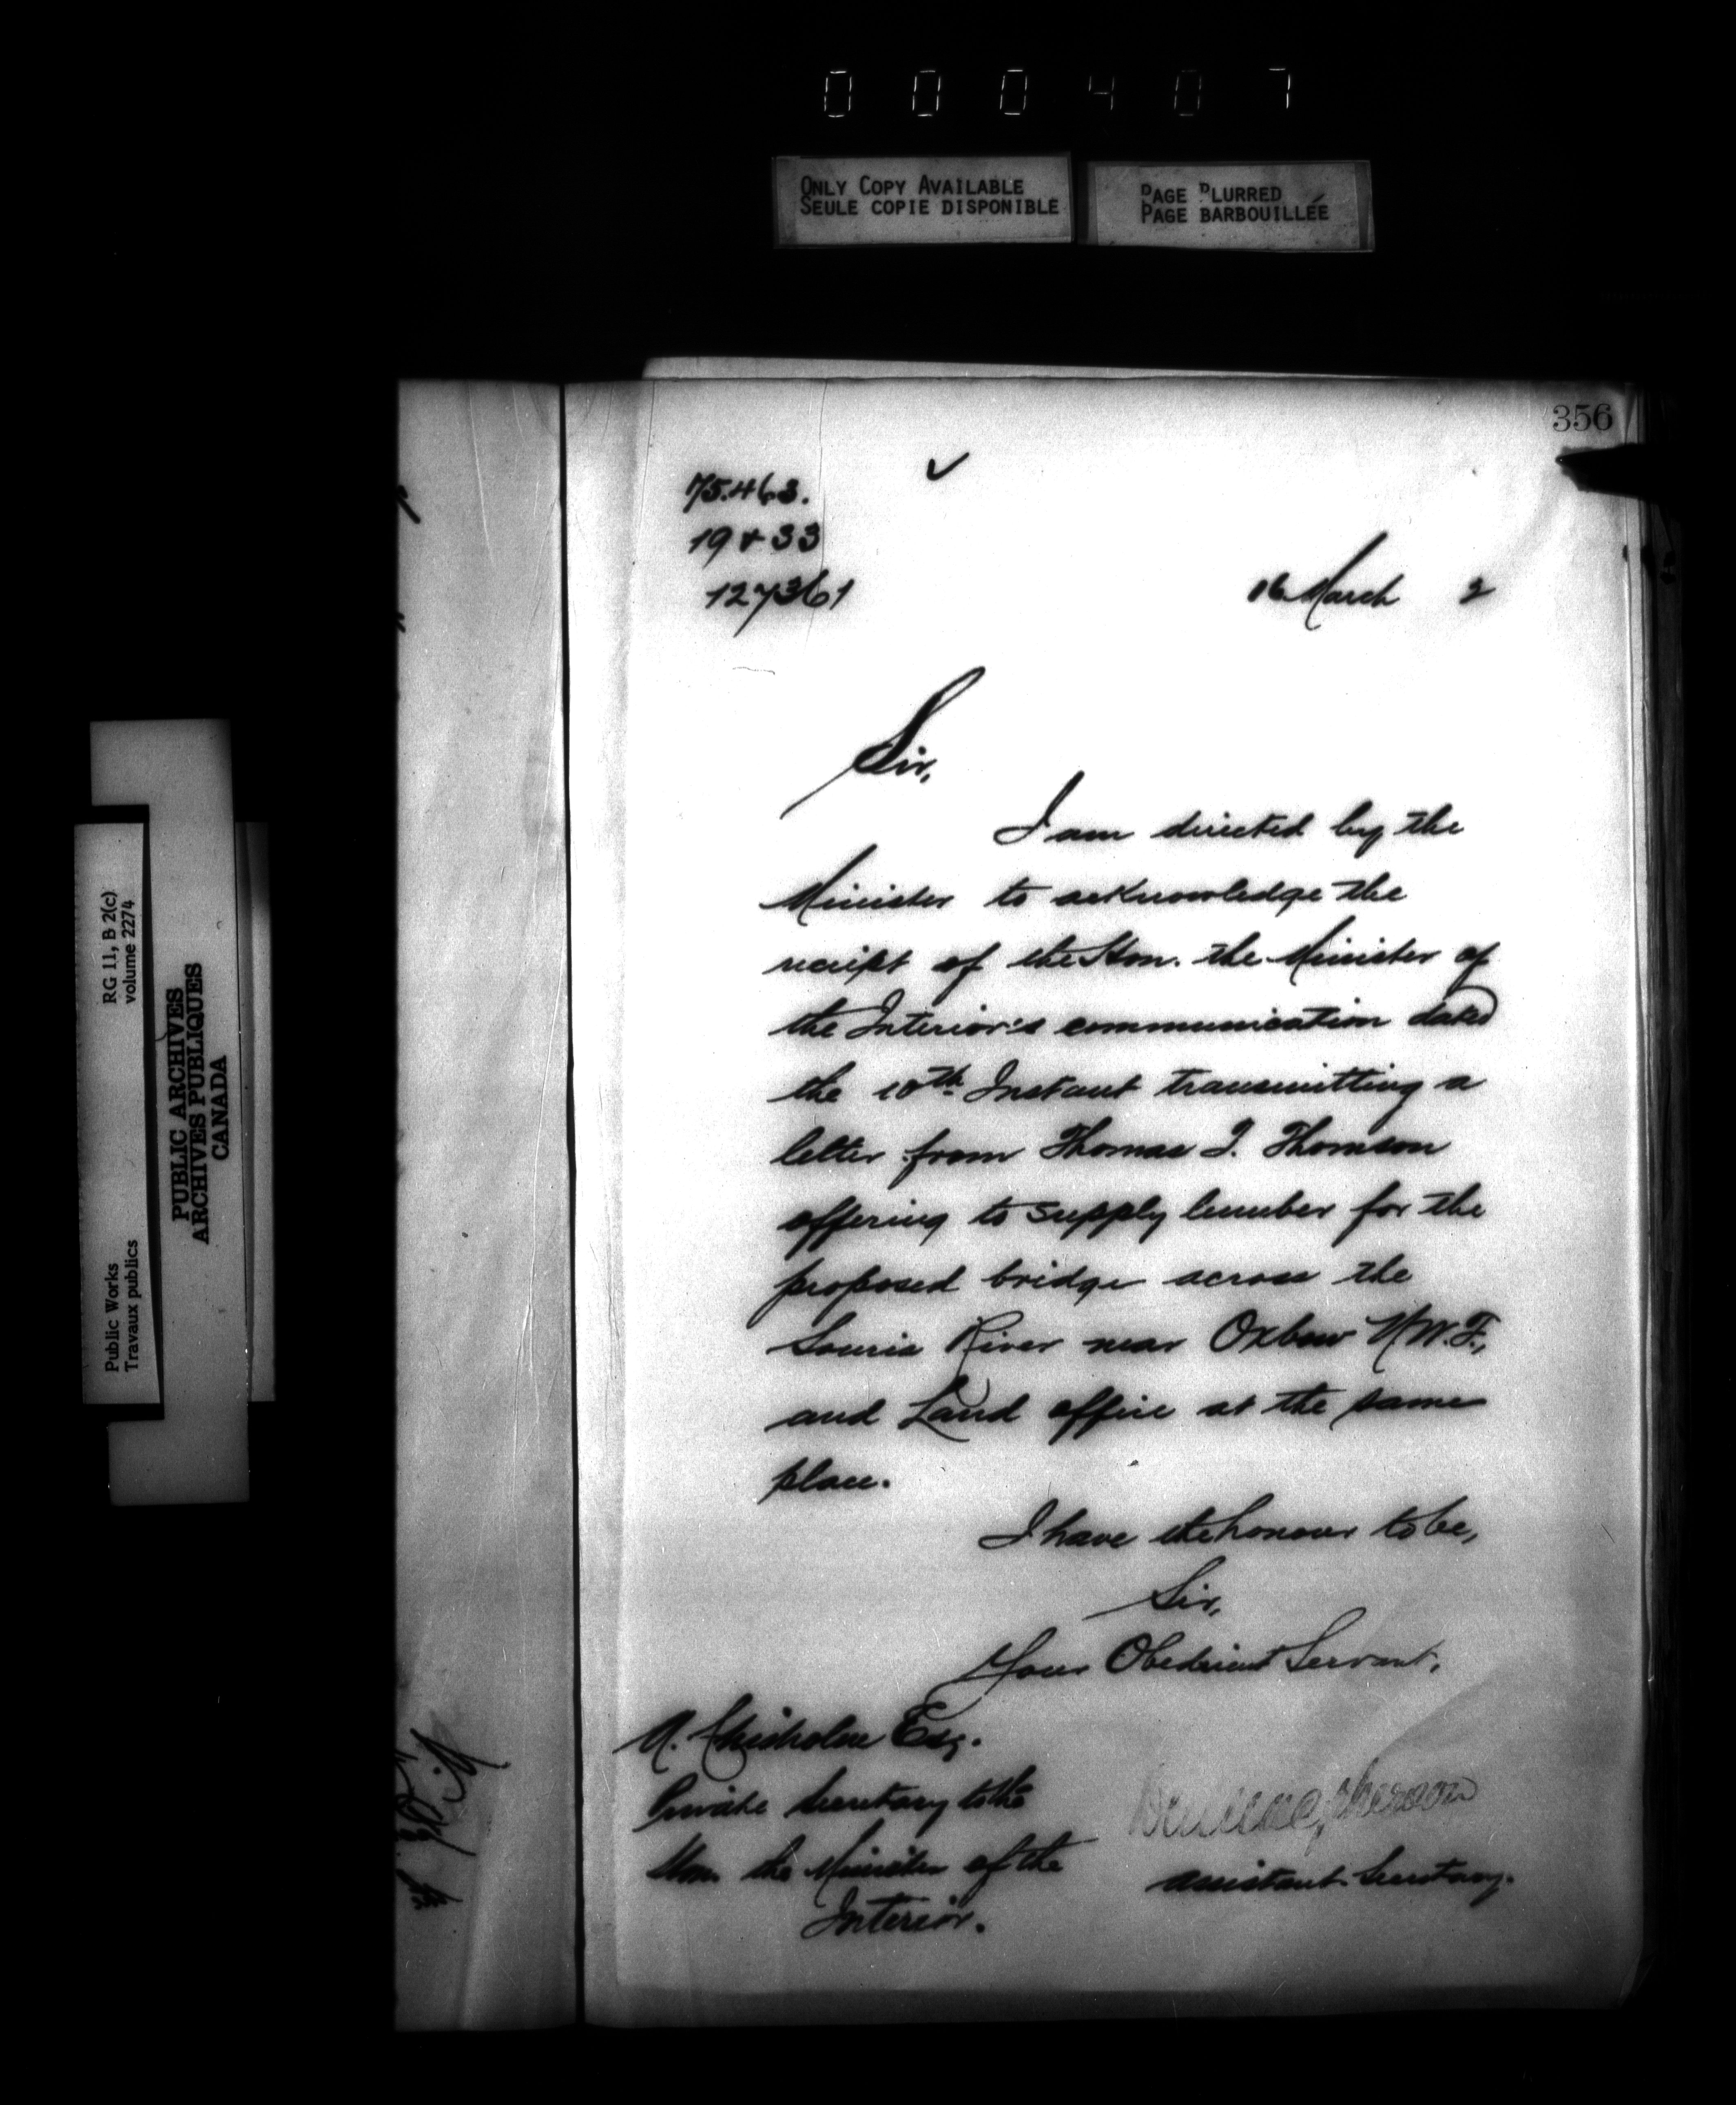 000407
ONLY COPY AVAILABLE
SEULE COPIE DISPONIBLE
PAGE BLURRED
PAGE BARBOUILLÉE
RG 11, B 2(c)
volume 2274
Public Works
Travaux publics
PUBLIC ARCHIVES
ARCHIVES PUBLIQUES
CANADA
356
75.463.
19 & 33
127361
16 March 2
Sir,
I am directed by the
Minister to acknowledge the
receipt of the Hon. the Minister of
the Interior's communication dated
the 10th Instant transmitting a
letter from Thomas I. Thomson
offering to supply lumber for the
proposed bridge across the
Souris River near Oxbow N.W.T.,
and Land office at the same
place.
I have the honour to be,
Sir,
Your Obedient Servant,
A. Chisholm Esq.
Private Secretary to the
Hon. the Minister of the
Interior.
Assistant Secretary.